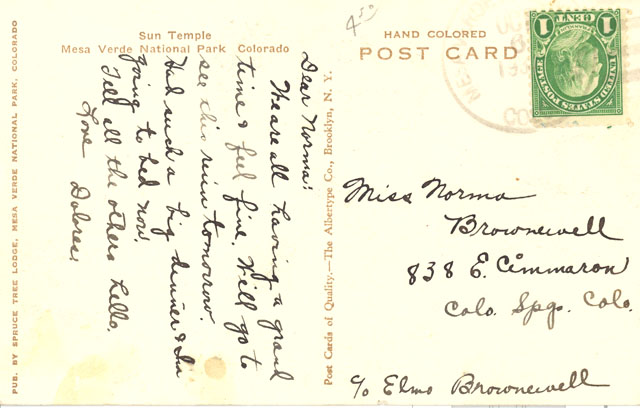 Sun Temple
Mesa Verde National Park Colorado
Dear Norma:
We are all having a grand
time & feel fine. Will go to
see this ruin tomorrow.
Had such a big dinner & Im
going to bed now.
Tell all the others hello.
Love Dolores.
PUB. BY SPRUCE TREE LODGE, MESA VERDE NATIONAL PARK, COLORADO
Post Cards of Quality.—The Albertype Co., Brooklyn, N. Y.
4.50
HAND COLORED
POST CARD
UNITED STATES POSTAGE
1 CENT 1
Miss Norma
Brownewell
838 E. Cimmaron
Colo. Spgs. Colo.
c/o Elmo Brownewell